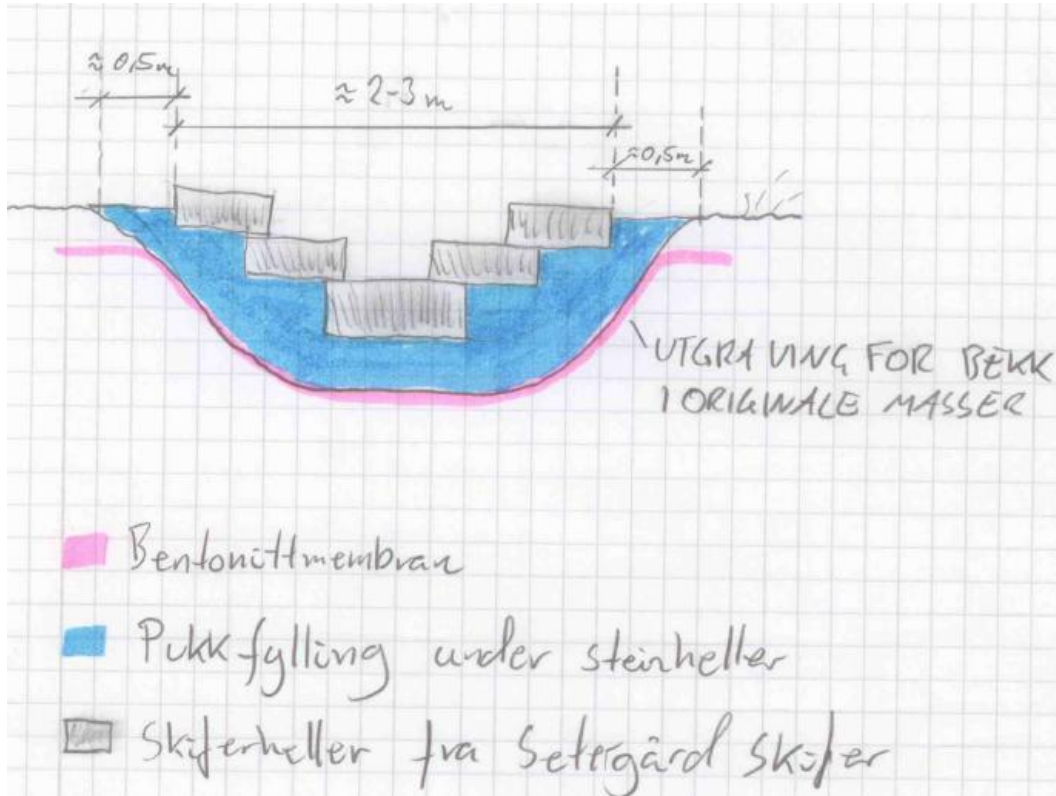 ≈ 0,5m
≈ 2-3 m
≈0,5m
UTGRAVING FOR BEKK
I ORIGINALE MASSER
Bentonittmembran
Pukkfylling under steinheller
Skiferheller fra Setergård Skifer